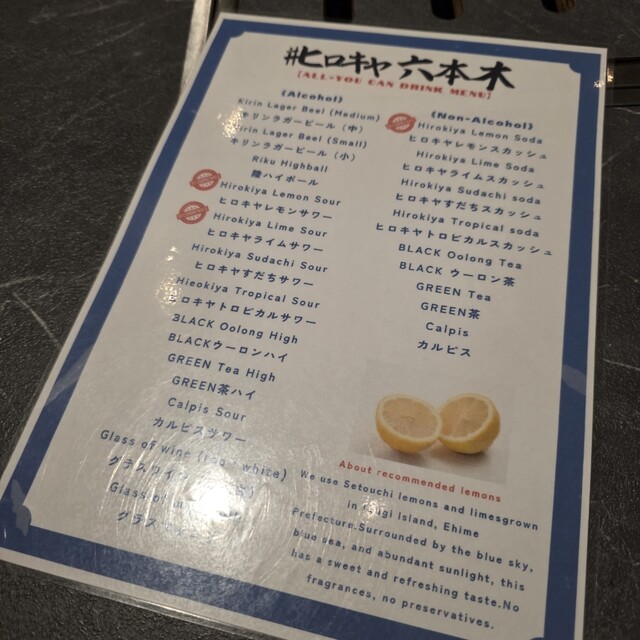 #ヒロキヤ 六本木
[ALL-YOU CAN DRINK MENU]
(Alcohol)
Kirin Lager Beel (Medium)
キリンラガービール (中)
Kirin Lager Beel (Small)
キリンラガービール (小)
Riku Highball
陸ハイボール
Hirokiya Lemon Sour
ヒロキヤレモンサワー
Hirokiya Lime Sour
ヒロキヤライムサワー
Hirokiya Sudachi Sour
ヒロキヤすだちサワー
Hirokiya Tropical Sour
ヒロキヤトロピカルサワー
BLACK Oolong High
BLACKウーロンハイ
GREEN Tea High
GREEN茶ハイ
Calpis Sour
カルピスサワー
Glass of wine white)
グラスワイ
Glass of
グラス
(Non-Alcohol)
Hirokiya Lemon Soda
ヒロキヤレモンスカッシュ
Hirokiya Lime Soda
ヒロキヤライムスカッシュ
Hirokiya Sudachi soda
ヒロキヤすだちスカッシュ
Hirokiya Tropical soda
ヒロキヤトロピカルスカッシュ
BLACK Oolong Tea
BLACK ウーロン茶
GREEN Tea
GREEN茶
Calpis
カルピス
About recommended lemons
We use Setouchi lemons and limesgrown
in Island, Ehime
Prefecture.Surrounded by the blue sky,
blue sea, and abundant sunlight, this
has a sweet and refreshing taste.No
fragrances, no preservatives.